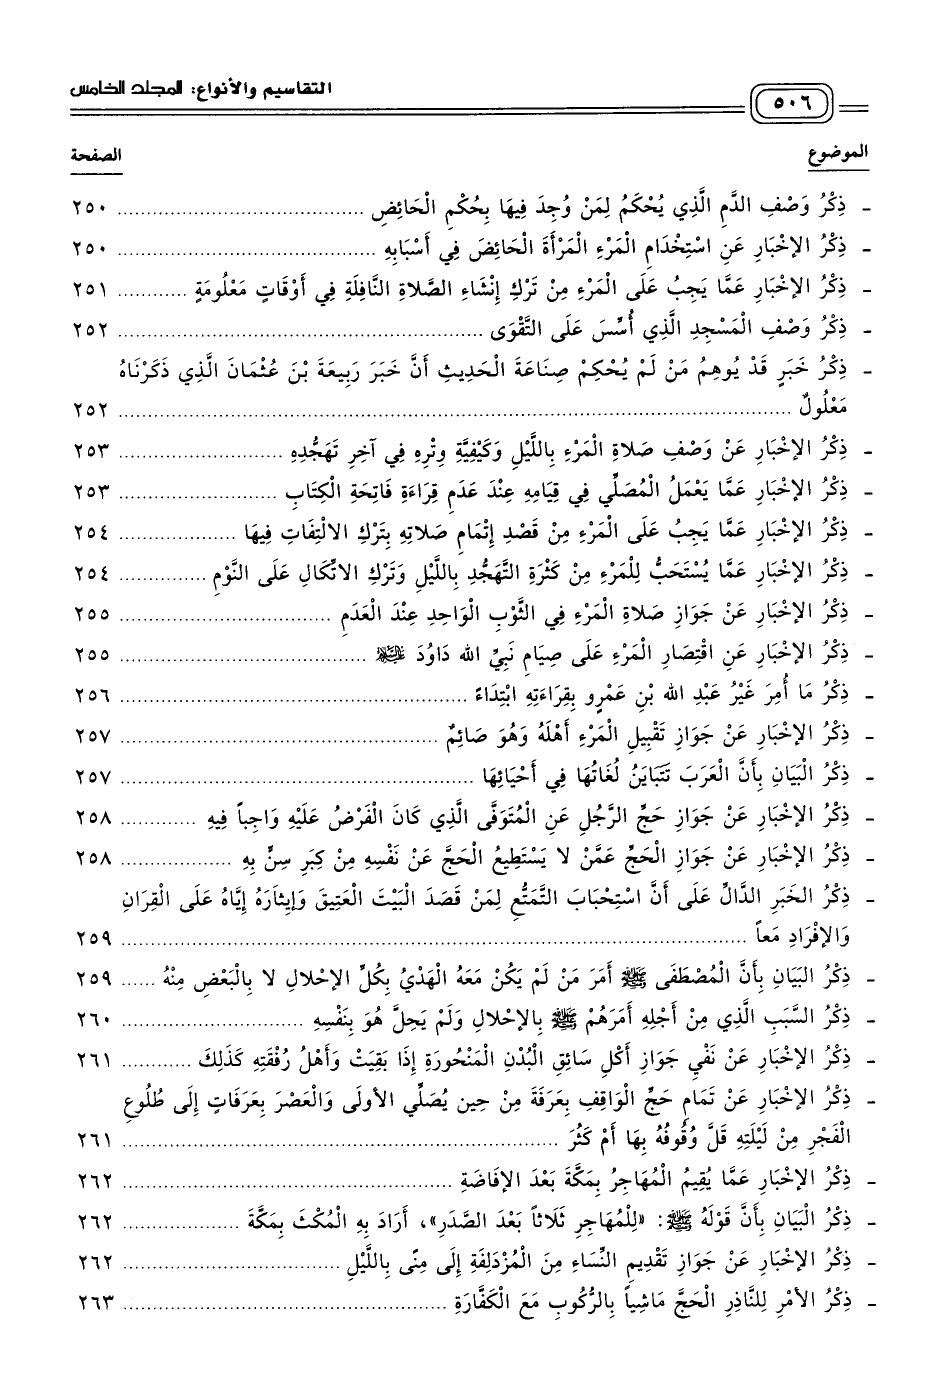 التقاسيم والأنواع: المجلد الخامس
٥٠٦
الموضوع الصفحة
- ذِكْرُ وَصْفِ الدَّمِ الَّذِي يُحْكَمُ لِمَنْ وُجِدَ فِيهَا بِحُكْمِ الْحَائِضِ ........ ٢٥٠
- ذِكْرُ الإخْبَارِ عَنِ اسْتِخْدَامِ الْمَرْءِ الْمَرْأَةَ الْحَائِضَ فِي أَسْبَابِهِ ........ ٢٥٠
- ذِكْرُ الإخْبَارِ عَمَّا يَجِبُ عَلَى الْمَرْءِ مِنْ تَرْكِ إِنْشَاءِ الصَّلَاةِ النَّافِلَةِ فِي أَوْقَاتٍ مَعْلُومَةٍ ........ ٢٥١
- ذِكْرُ وَصْفِ الْمَسْجِدِ الَّذِي أُسِّسَ عَلَى التَّقْوَى ........ ٢٥٢
- ذِكْرُ خَبَرٍ قَدْ يُوهِمُ مَنْ لَمْ يُحْكِمْ صِنَاعَةَ الْحَدِيثِ أَنَّ خَبَرَ رَبِيعَةَ بْنِ عُثْمَانَ الَّذِي ذَكَرْنَاهُ
مَعْلُولٌ ........ ٢٥٢
- ذِكْرُ الإخْبَارِ عَنْ وَصْفِ صَلَاةِ الْمَرْءِ بِاللَّيْلِ وَكَيْفِيَّةِ وِتْرِهِ فِي آخِرِ تَهَجُّدِهِ ........ ٢٥٣
- ذِكْرُ الإخْبَارِ عَمَّا يَعْمَلُ الْمُصَلِّي فِي قِيَامِهِ عِنْدَ عَدَمِ قِرَاءَةِ فَاتِحَةِ الْكِتَابِ ........ ٢٥٣
- ذِكْرُ الإخْبَارِ عَمَّا يَجِبُ عَلَى الْمَرْءِ مِنْ قَصْدِ إِتْمَامِ صَلاتِهِ بِتَرْكِ الالْتِفَاتِ فِيهَا ........ ٢٥٤
- ذِكْرُ الإخْبَارِ عَمَّا يُسْتَحَبُّ لِلْمَرْءِ مِنْ كَثْرَةِ التَّهَجُّدِ بِاللَّيْلِ وَتَرْكِ الاتِّكَالِ عَلَى النَّوْمِ ........ ٢٥٤
- ذِكْرُ الإخْبَارِ عَنْ جَوَازِ صَلاةِ الْمَرْءِ فِي الثَّوْبِ الْوَاحِدِ عِنْدَ الْعَدَمِ ........ ٢٥٥
- ذِكْرُ الإخْبَارِ عَنِ اقْتِصَارِ الْمَرْءِ عَلَى صِيَامِ نَبِيِّ الله دَاوُدَ عَلَيْهِ السَّلَام ........ ٢٥٥
- ذِكْرُ مَا أُمِرَ غَيْرُ عَبْدِ الله بْنِ عَمْرٍو بِقِرَاءَتِهِ ابْتِدَاءً ........ ٢٥٦
- ذِكْرُ الإخْبَارِ عَنْ جَوَازِ تَقْبِيلِ الْمَرْءِ أَهْلَهُ وَهُوَ صَائِمٌ ........ ٢٥٧
- ذِكْرُ الْبَيَانِ بِأَنَّ الْعَرَبَ تَتَبَايَنُ لُغَاتُهَا فِي أَحْيَائِهَا ........ ٢٥٧
- ذِكْرُ الإخْبَارِ عَنْ جَوَازِ حَجِّ الرَّجُلِ عَنِ الْمُتَوَفَّى الَّذِي كَانَ الْفَرْضُ عَلَيْهِ وَاجِباً فِيهِ ........ ٢٥٨
- ذِكْرُ الإخْبَارِ عَنْ جَوَازِ الْحَجِّ عَمَّنْ لا يَسْتَطِيعُ الْحَجَّ عَنْ نَفْسِهِ مِنْ كِبَرِ سِنٍّ بِهِ ........ ٢٥٨
- ذِكْرُ الخَبَرِ الدَّالِّ عَلَى أَنَّ اسْتِحْبَابَ التَّمَتُّعِ لِمَنْ قَصَدَ الْبَيْتَ الْعَتِيقَ وَإِيثَارَهُ إِيَّاهُ عَلَى الْقِرَانِ
وَالإفْرَادِ مَعاً ........ ٢٥٩
- ذِكْرُ البَيَانِ بِأَنَّ الْمُصْطَفَى ﷺ أَمَرَ مَنْ لَمْ يَكُنْ مَعَهُ الْهَدْيُ بِكُلِّ الإحْلالِ لا بِالْبَعْضِ مِنْهُ ...... ٢٥٩
- ذِكْرُ السَّبَبِ الَّذِي مِنْ أَجْلِهِ أَمَرَهُمْ ﷺ بِالإحْلالِ وَلَمْ يَحِلَّ هُوَ بِنَفْسِهِ ........ ٢٦٠
- ذِكْرُ الإخْبَارِ عَنْ نَفْيِ جَوَازِ أَكْلِ سَائِقِ الْبُدْنِ الْمَنْحُورَةِ إِذَا بَقِيَتْ وَأَهْلُ رُفْقَتِهِ كَذَلِكَ ........ ٢٦١
- ذِكْرُ الإخْبَارِ عَنْ تَمَامِ حَجِّ الْوَاقِفِ بِعَرَفَةَ مِنْ حِين يُصَلِّي الأولَى وَالْعَصْرَ بِعَرَفَاتٍ إِلَى طُلُوعِ
الْفَجْرِ مِنْ لَيْلَتِهِ قَلَّ وُقُوفُهُ بِهَا أَمْ كَثُرَ ........ ٢٦١
- ذِكْرُ الإخْبَارِ عَمَّا يُقِيمُ الْمُهَاجِرُ بِمَكَّةَ بَعْدَ الإفَاضَةِ ........ ٢٦٢
- ذِكْرُ الْبَيَانِ بِأَنَّ قَوْلَهُ ﷺ: «لِلْمُهَاجِرِ ثَلاثاً بَعْدَ الصَّدَرِ»، أَرَادَ بِهِ الْمُكْثَ بِمَكَّةَ ........ ٢٦٢
- ذِكْرُ الإخْبَارِ عَنْ جَوَازِ تَقْدِيمِ النِّسَاءِ مِنَ الْمُزْدَلِفَةِ إِلَى مِنًى بِاللَّيْلِ ........ ٢٦٢
- ذِكْرُ الأمْرِ لِلنَّاذِرِ الْحَجَّ مَاشِياً بِالرُّكُوبِ مَعَ الْكَفَّارَةِ ........ ٢٦٣